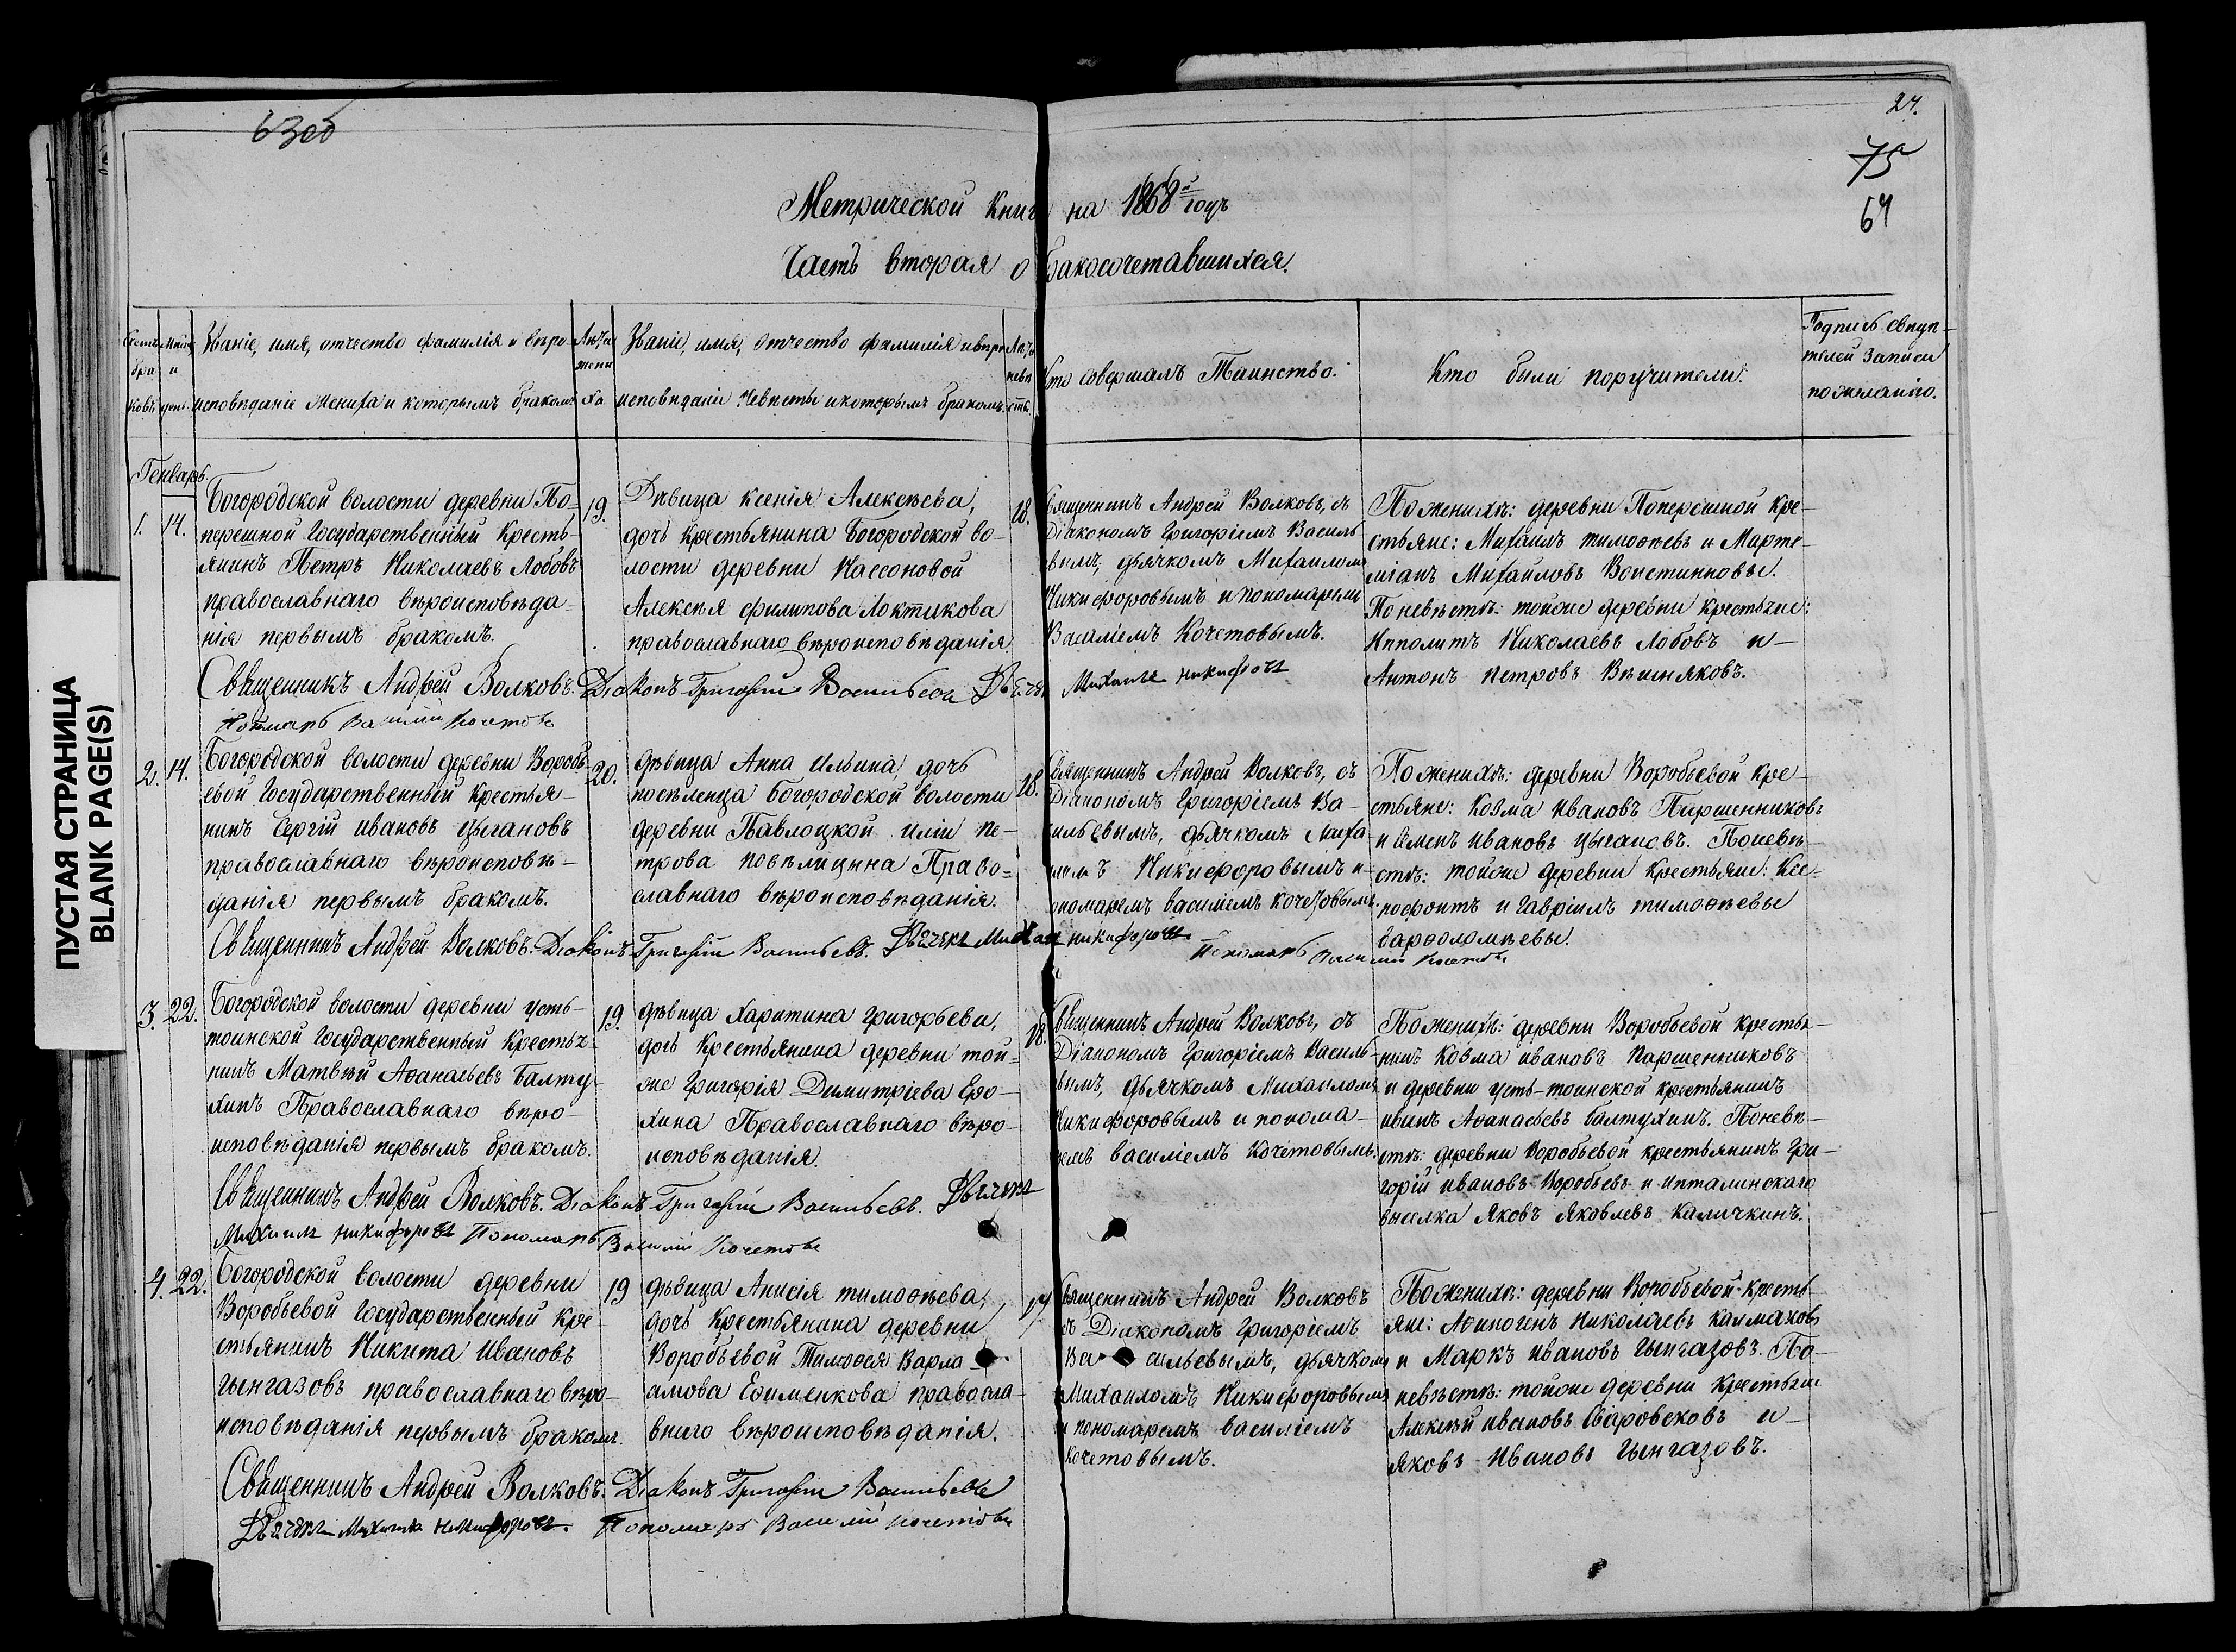 63об
27.
75
64
Метрической книги на 1868й годъ
Часть вторая о бракосочетавшихся.
Счетъ браковъ
Мѣсяцъ и день.
Званіе, имя, отчество фамилія и вѣро-
исповѣданіе жениха и которымъ бракомъ
Лѣта жениха
Званіе, имя, отчество фамилія и вѣро
исповѣданіе невѣсты и которымъ бракомъ.
Лѣта невѣсты.
Кто совершалъ Таинство.
Кто были поручители.
Подпись свидѣ-
телей записи
по желанію.
Генварь.
1. 14.
Богородской волости деревни По-
перешной Государственный Кресть-
янинъ Петръ Николаевъ Лобовъ
православнаго вѣроисповѣда-
нія первымъ бракомъ.
19.
Дѣвица Ксенія Алексѣева,
дочь крестьянина Богородской во-
лости деревни Нассоновой
Алексѣя Филипова Локтикова
православнаго вѣроисповѣданія
18.
Священникъ Андрей Волковъ, съ
Діакономъ Григоріемъ Василь
вымъ, дьячкомъ Михаиломъ
Никифоровымъ и пономаремъ
Василіемъ Кочетовымъ.
По женихѣ: деревни Поперешной кре-
стьяне: Михаилъ Тимоѳѣевъ и Марте-
міанъ Михайловъ Воистинновы.
По невѣстѣ: тойже деревни крестьяне:
Ипполитъ Николаевъ Лобовъ и
Антонъ Петровъ Вѣшняковъ.
Священникъ Андрей Волковъ. Діаконъ Григорій Васильевъ Дьячекъ Михаилъ Никифоровъ
Пономарь Василій Кочетовъ
2. 14.
Богородской волости деревни Воробь
евой Государственный Крестья-
нинъ Сергій Ивановъ Цыгановъ
православнаго вѣроисповѣ-
данія первымъ бракомъ.
20.
дѣвица Анна Ильина, дочь
поселенца Богородской волости
деревни Павлоцкой Иліи Пе-
трова Право-
славнаго вѣроисповѣданія.
18.
Священникъ Андрей Волковъ, съ
Діакономъ Григоріемъ Ва-
сильевымъ, дьячкомъ Миха-
иломъ Никифоровымъ и
пономаремъ Василіемъ Кочетовымъ.
По женихѣ: деревни Воробьевой Кре-
стьяне: Козма Ивановъ Паршенниковъ
и Семенъ Ивановъ Цыгановъ. По невѣ-
стѣ: тойже деревни Крестьяне: Ксе-
нофонтъ и Гавріилъ Тимоѳѣевы
Варѳоломѣевы.
Священникъ Андрей Волковъ. Діаконъ Григорій Васильевъ. Дьячекъ Михаилъ Никифоровъ
Пономарь Василій Кочетовъ
3. 22.
Богородской волости деревни Усть-
тоинской Государственный Крестья
нинъ Матвѣй Аѳанасьевъ Балту-
хинъ Православнаго вѣро-
исповѣданія первымъ бракомъ.
19.
дѣвица Харитина Григорьева,
дочь Крестьянина деревни той-
же Григорія Димитріева Еро-
хина Православнаго вѣро-
исповѣданія.
18.
Священникъ Андрей Волковъ, съ
Діакономъ Григоріемъ Василь-
вымъ, дьячкомъ Михаиломъ
Никифоровымъ и понома-
ремъ Василіемъ Кочетовымъ.
По женихѣ: деревни Воробьевой крестья-
нинъ Козма Ивановъ Паршенниковъ
и деревни Усть-тоинской крестьянинъ
Иванъ Аѳанасьевъ Балтухинъ. По невѣ-
стѣ: деревни Воробьевой крестьянинъ Гри-
горій Ивановъ Воробьевъ и Ипталинскаго
выселка Яковъ Яковлевъ Каличкинъ.
Священникъ Андрей Волковъ. Діаконъ Григорій Васильевъ. Дьячекъ
Михаилъ Никифоровъ Пономарь Василій Кочетовъ
4. 22.
Богородской волости деревни
Воробьевой Государственный Кре-
стьянинъ Никита Ивановъ
Гынгазовъ православнаго вѣро-
исповѣданія первымъ бракомъ.
19
дѣвица Анисія Тимоѳѣева,
дочь Крестьянина деревни
Воробьевой Тимоѳея Варла-
амова Ефименкова правосла-
внаго вѣроисповѣданія.
17
Священникъ Андрей Волковъ
съ Діакономъ Григоріемъ
Васильевымъ, дьячкомъ
Михаиломъ Никифоровымъ
и пономаремъ Василіемъ
Кочетовымъ.
По женихѣ: деревни Воробьевой кресть-
яне: Аѳиногенъ Николаевъ Каймаковъ
и Маркъ Ивановъ Гынгазовъ. По-
невѣстѣ: тойже деревни Крестьяне
Алексѣй Ивановъ Сваровсковъ и
Яковъ Ивановъ Гынгазовъ.
Священникъ Андрей Волковъ. Діаконъ Григорій Васильевъ
Дьячекъ Михаилъ Никифоровъ. Пономарь Василій Кочетовъ
ПУСТАЯ СТРАНИЦА
BLANK PAGE(S)